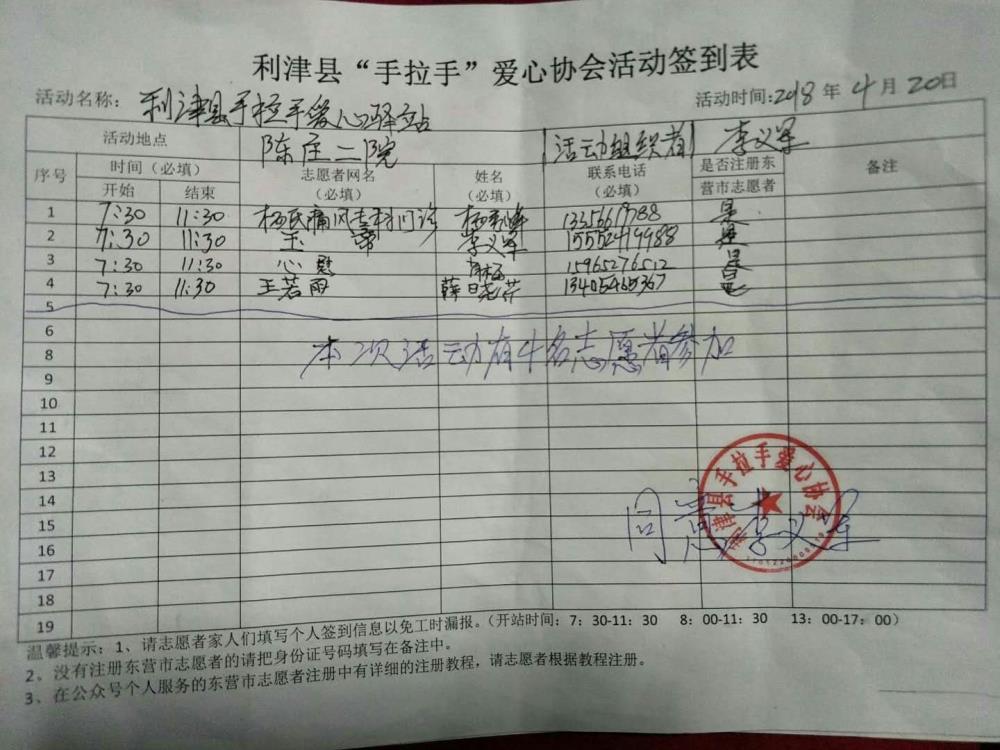 利津县“手拉手”爱心协会活动签到表
活动名称: 利津县手拉手爱心驿站 活动时间:2018年4月20日
活动地点 陈庄二院 活动组织者 李义军
序号 时间（必填） 志愿者网名（必填） 姓名（必填） 联系电话（必填） 是否注册东营市志愿者 备注
开始 结束
1 7:30 11:30 杨氏痛风专科门诊 杨 是
2 7:30 11:30 李义军 15552419988 是
3 7:30 11:30 心慰 15965276512 是
4 7:30 11:30 王若雨 薛晓芹 13405465367 是
5
6
8 本次活动有4名志愿者参加
9
10
11
12
13
14
15
16
17
18
19
利津县手拉手爱心协会
同意 李义军
温馨提示：1、请志愿者家人们填写个人签到信息以免工时漏报。（开站时间：7：30-11：30 8：00-11：30 13：00-17：00）
2、没有注册东营市志愿者的请把身份证号码填写在备注中。
3、在公众号个人服务的东营市志愿者注册中有详细的注册教程，请志愿者根据教程注册。